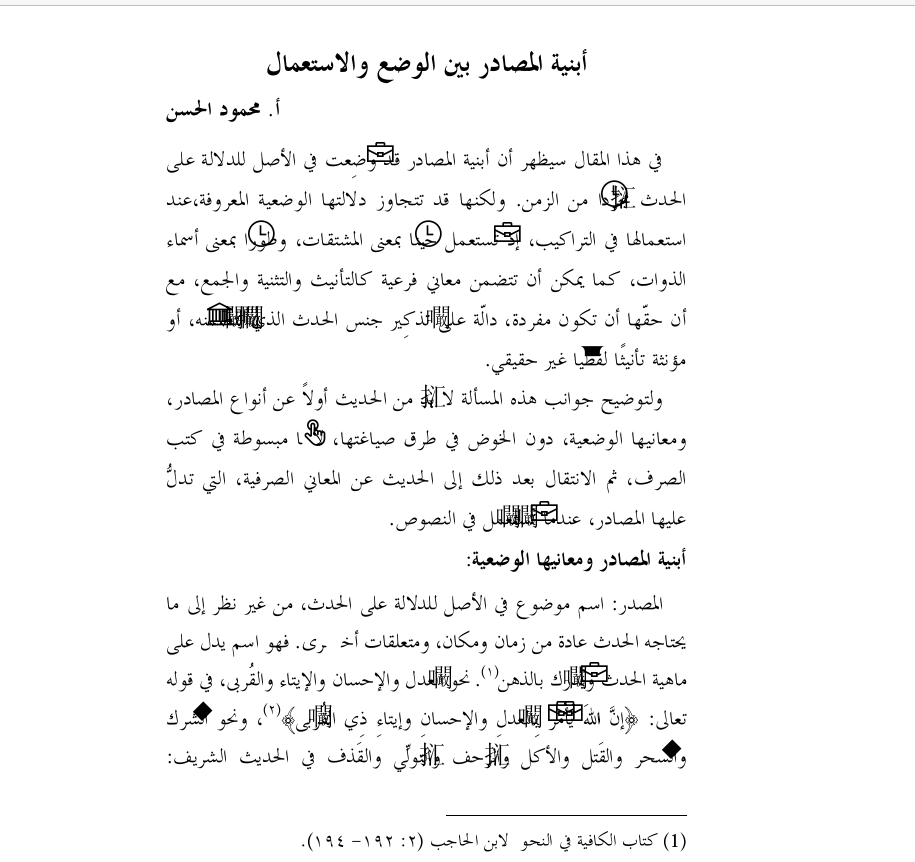 أبنية المصادر بين الوضع والاستعمال
أ. محمود الحسن
في هذا المقال سيظهر أن أبنية المصادر قد وُضِعت في الأصل للدلالة على
الحدث من الزمن. ولكنها قد تتجاوز دلالتها الوضعية المعروفة،عند
استعمالها في التراكيب، إذ تستعمل حينًا بمعنى المشتقات، وطورًا بمعنى أسماء
الذوات، كما يمكن أن تتضمن معاني فرعية كالتأنيث والتثنية والجمع، مع
أن حقّها أن تكون مفردة، دالّة على تذكِير جنس الحدث الذي منه، أو
مؤنثة تأنيثًا لفظيا غير حقيقي.
ولتوضيح جوانب هذه المسألة لا من الحديث أولاً عن أنواع المصادر،
ومعانيها الوضعية، دون الخوض في طرق صياغتها، مبسوطة في كتب
الصرف، ثم الانتقال بعد ذلك إلى الحديث عن المعاني الصرفية، التي تدلُّ
عليها المصادر، عندما في النصوص.
أبنية المصادر ومعانيها الوضعية:
المصدر: اسم موضوع في الأصل للدلالة على الحدث، من غير نظر إلى ما
يحتاجه الحدث عادة من زمان ومكان، ومتعلقات أخـرى. فهو اسم يدل على
ماهية الحدث بالذهن(١). نحو العدل والإحسان والإيتاء والقُربى، في قوله
تعالى: ﴿إنَّ اللهَ يأمُر بِالعدلِ والإحسانِ وإيتاءِ ذِي القُربى﴾(٢)، ونحو الشرك
والسحر والقَتل والأكل والزحف والتولِّي والقَذف في الحديث الشريف:
(1) كتاب الكافية في النحو لابن الحاجب (٢: ١٩٢– ١٩٤).